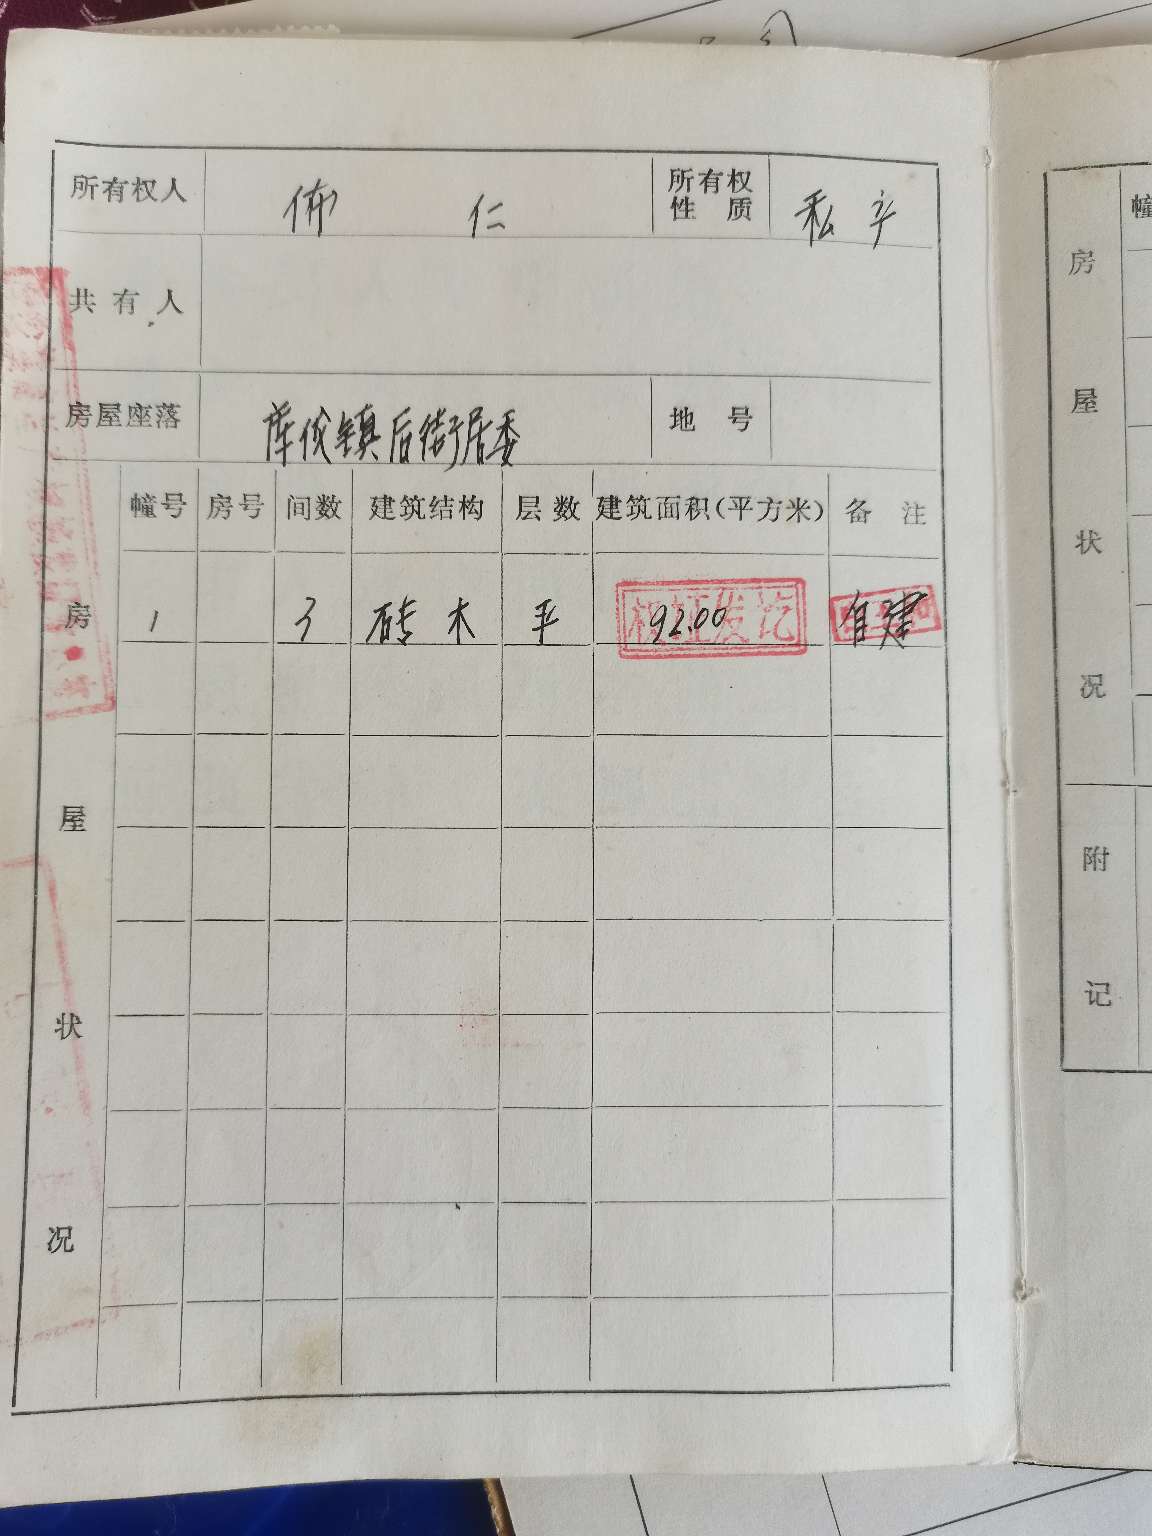 所有权人 佈仁 所有权性质 私产
共有人
房屋座落 库伦镇后街居委 地号
幢号 房号 间数 建筑结构 层数 建筑面积(平方米) 备注
1 3 砖木 平 92.00 自建
权证发讫
房屋状况
幢
房屋状况
附记